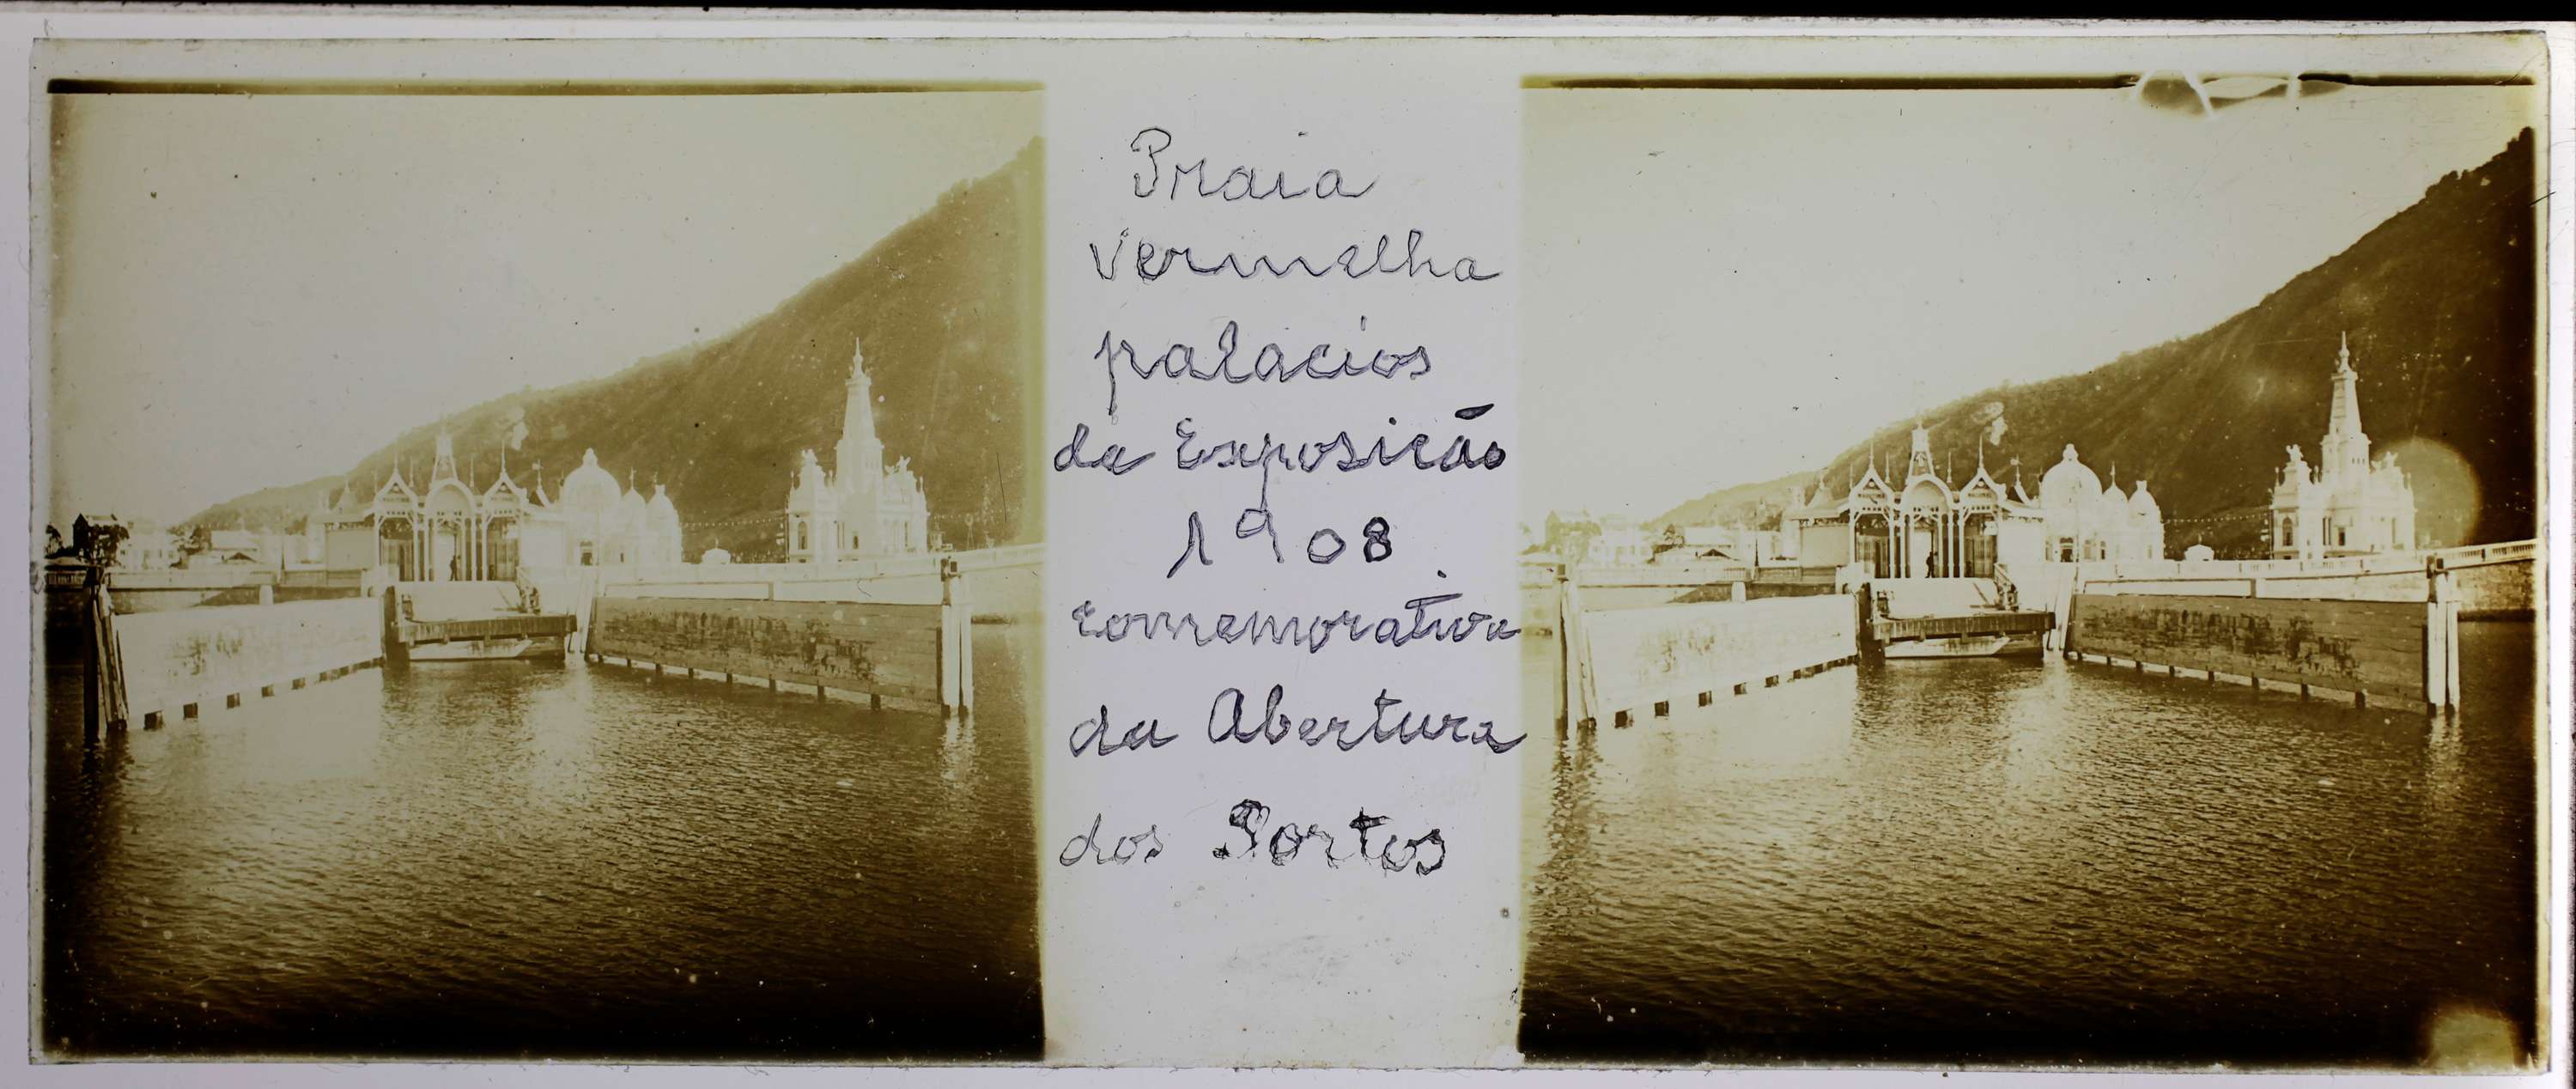 Praia
Vermelha
palacios
da Exposicão
1908
comemorativa
da Abertura
dos Portos